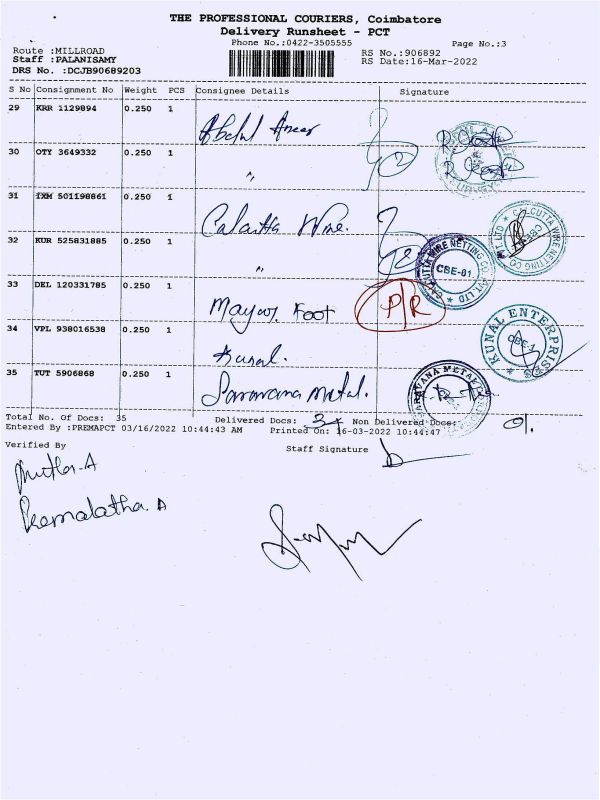 THE PROFESSIONAL COURIERS, Coimbatore
Delivery Runsheet - PCT
Phone No.:0422-3505555
Page No.:3
Route :MILLROAD
Staff :PALANISAMY
DRS No. :DCJB90689203
RS No.:906892
RS Date:16-Mar-2022
S No Consignment No Weight PCS Consignee Details Signature
29 KRR 1129894 0.250 1
30 OTY 3649332 0.250 1 〃
31 IXM 501198861 0.250 1 Calcutta Wire.
32 KUR 525831885 0.250 1 〃
CALCUTTA WIRE NETTING CO. PVT LTD
CBE-01
CALCUTTA WIRE NETTING CO PVT LTD
33 DEL 120331785 0.250 1 Foot P/R
34 VPL 938016538 0.250 1 Kunal.
KUNAL ENTERPRISE
CBE-1
35 TUT 5906868 0.250 1 Saravana Metal.
SARAVANA METAL
Total No. Of Docs: 35 Delivered Docs: 34 Non Delivered Docs:
Entered By :PREMAPCT 03/16/2022 10:44:43 AM Printed On: 16-03-2022 10:44:47
Verified By
Staff Signature
Premalatha. A